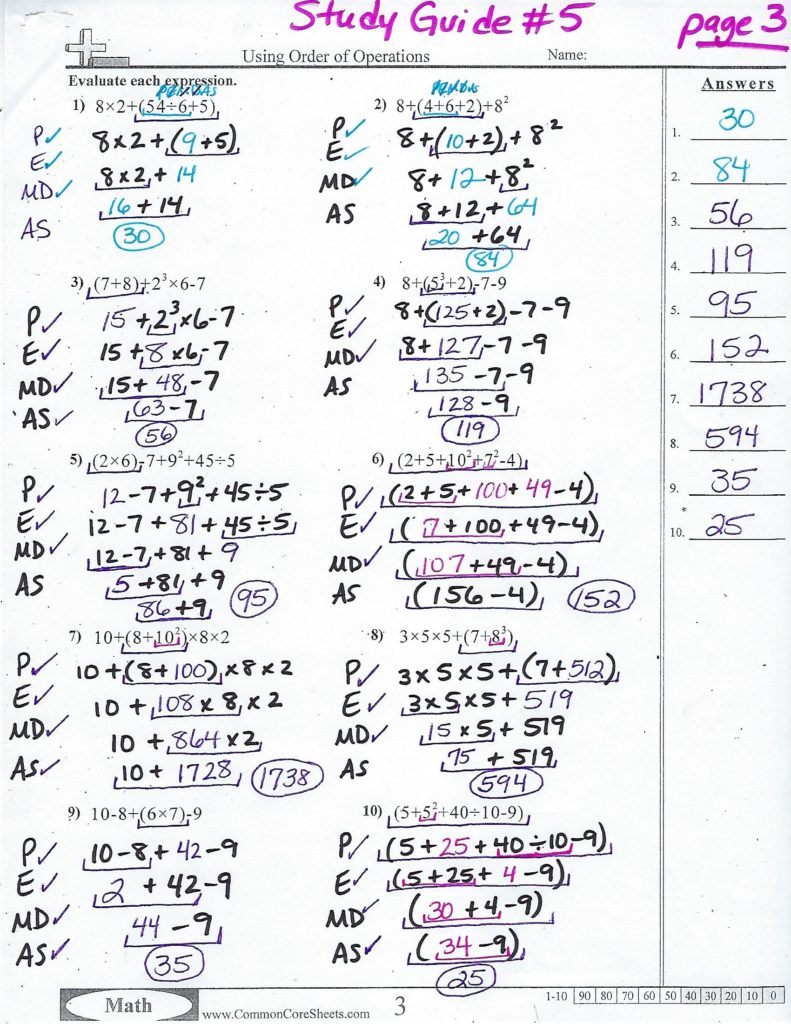 Study Guide #5 page 3
Using Order of Operations Name:
Evaluate each expression. Answers
1) 8×2+(54÷6+5)
P✓ 8×2+(9+5)
E✓ 8×2+14
MD✓ 16+14
AS 30
2) 8+(4+6+2)+8²
P✓ 8+(10+2)+8²
E✓ 8+12+8²
MD✓ 8+12+64
AS 20+64
84
3) (7+8)+2³×6-7
P✓ 15+2³×6-7
E✓ 15+8×6-7
MD✓ 15+48-7
AS✓ 63-7
56
4) 8+(5³+2)-7-9
P✓ 8+(125+2)-7-9
E✓ 8+127-7-9
MD✓ 135-7-9
AS 128-9
119
5) (2×6)-7+9²+45÷5
P✓ 12-7+9²+45÷5
E✓ 12-7+81+45÷5
MD✓ 12-7+81+9
AS 5+81+9
86+9 95
6) (2+5+10²+7²-4)
P✓ (2+5+100+49-4)
E✓ (7+100+49-4)
MD✓ (107+49-4)
AS (156-4) 152
7) 10+(8+10²)×8×2
P✓ 10+(8+100)×8×2
E✓ 10+108×8×2
MD✓ 10+864×2
AS✓ 10+1728 1738
8) 3×5×5+(7+8³)
P✓ 3×5×5+(7+512)
E✓ 3×5×5+519
MD✓ 15×5+519
AS 75+519
594
9) 10-8+(6×7)-9
P✓ 10-8+42-9
E✓ 2+42-9
MD✓ 44-9
AS✓ 35
10) (5+5²+40÷10-9)
P✓ (5+25+40÷10-9)
E✓ (5+25+4-9)
MD✓ (30+4-9)
AS✓ (34-9)
25
1. 30
2. 84
3. 56
4. 119
5. 95
6. 152
7. 1738
8. 594
9. 35
10. 25
Math www.CommonCoreSheets.com 3 1-10 90 80 70 60 50 40 30 20 10 0